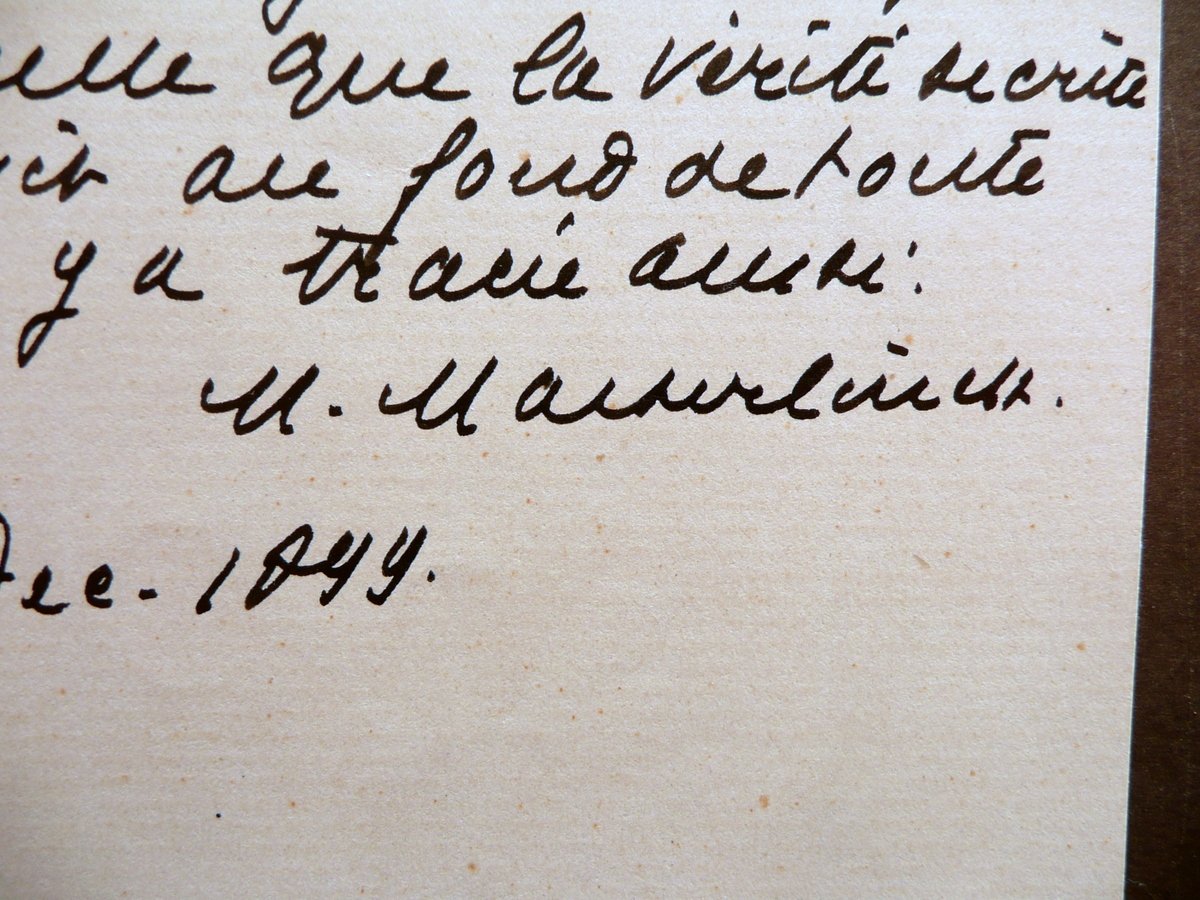 que la vérité secrète
au fond de toute
y a tracée aussi.
M. Maeterlinck.
Dec. 1899.